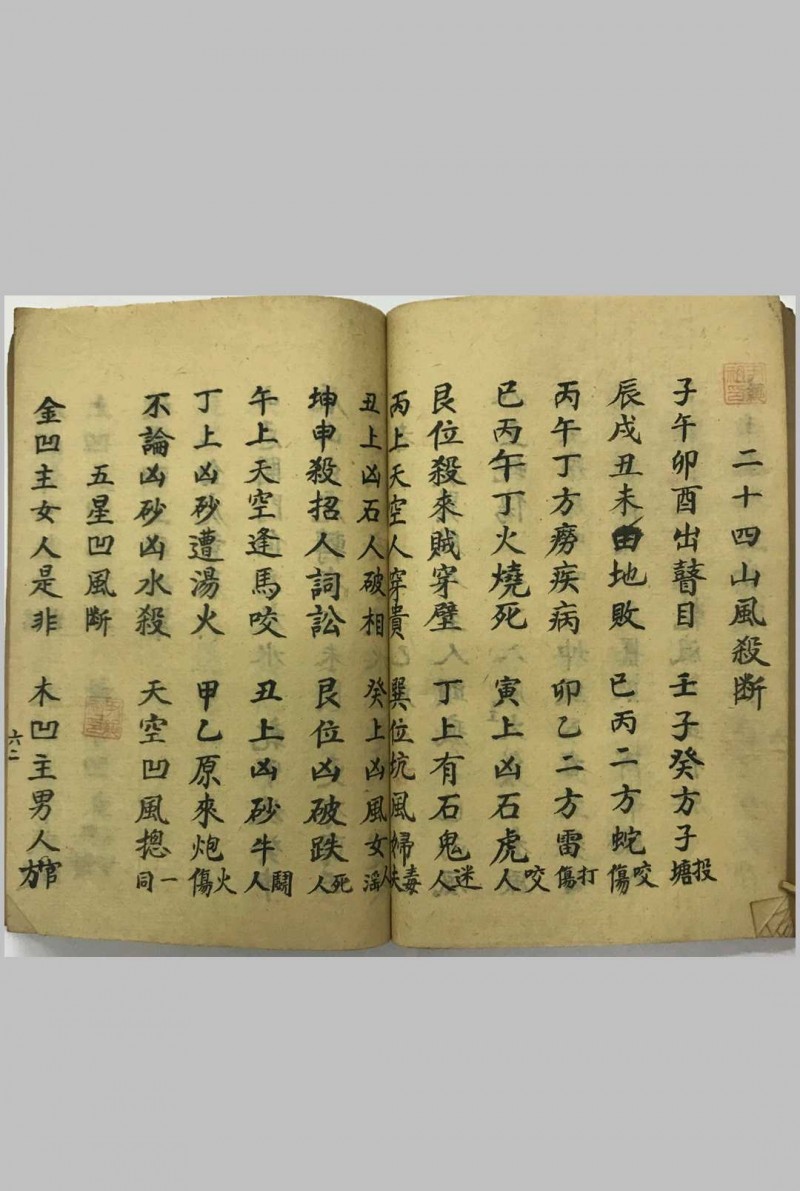 二十四山風殺斷
子午卯酉出瞽目 壬子癸方子投塘
辰戌丑未地敗 巳丙二方蛇咬傷
丙午丁方癆疾病 卯乙二方雷打傷
巳丙午丁火燒死 寅上凶石虎咬人
艮位殺來賊穿壁 丁上有石鬼迷人
丙上天空人穿貴 巽位坑風婦毒夫
丑上凶石人破相 癸上凶風女淫人
坤申殺招人詞訟 艮位凶破跌死人
午上天空逢馬咬 丑上凶砂牛鬪人
丁上凶砂遭湯火 甲乙原來炮火傷
不論凶砂凶水殺 天空凹風摠一同
五星凹風斷
金凹主女人是非 木凹主男人官方
六二